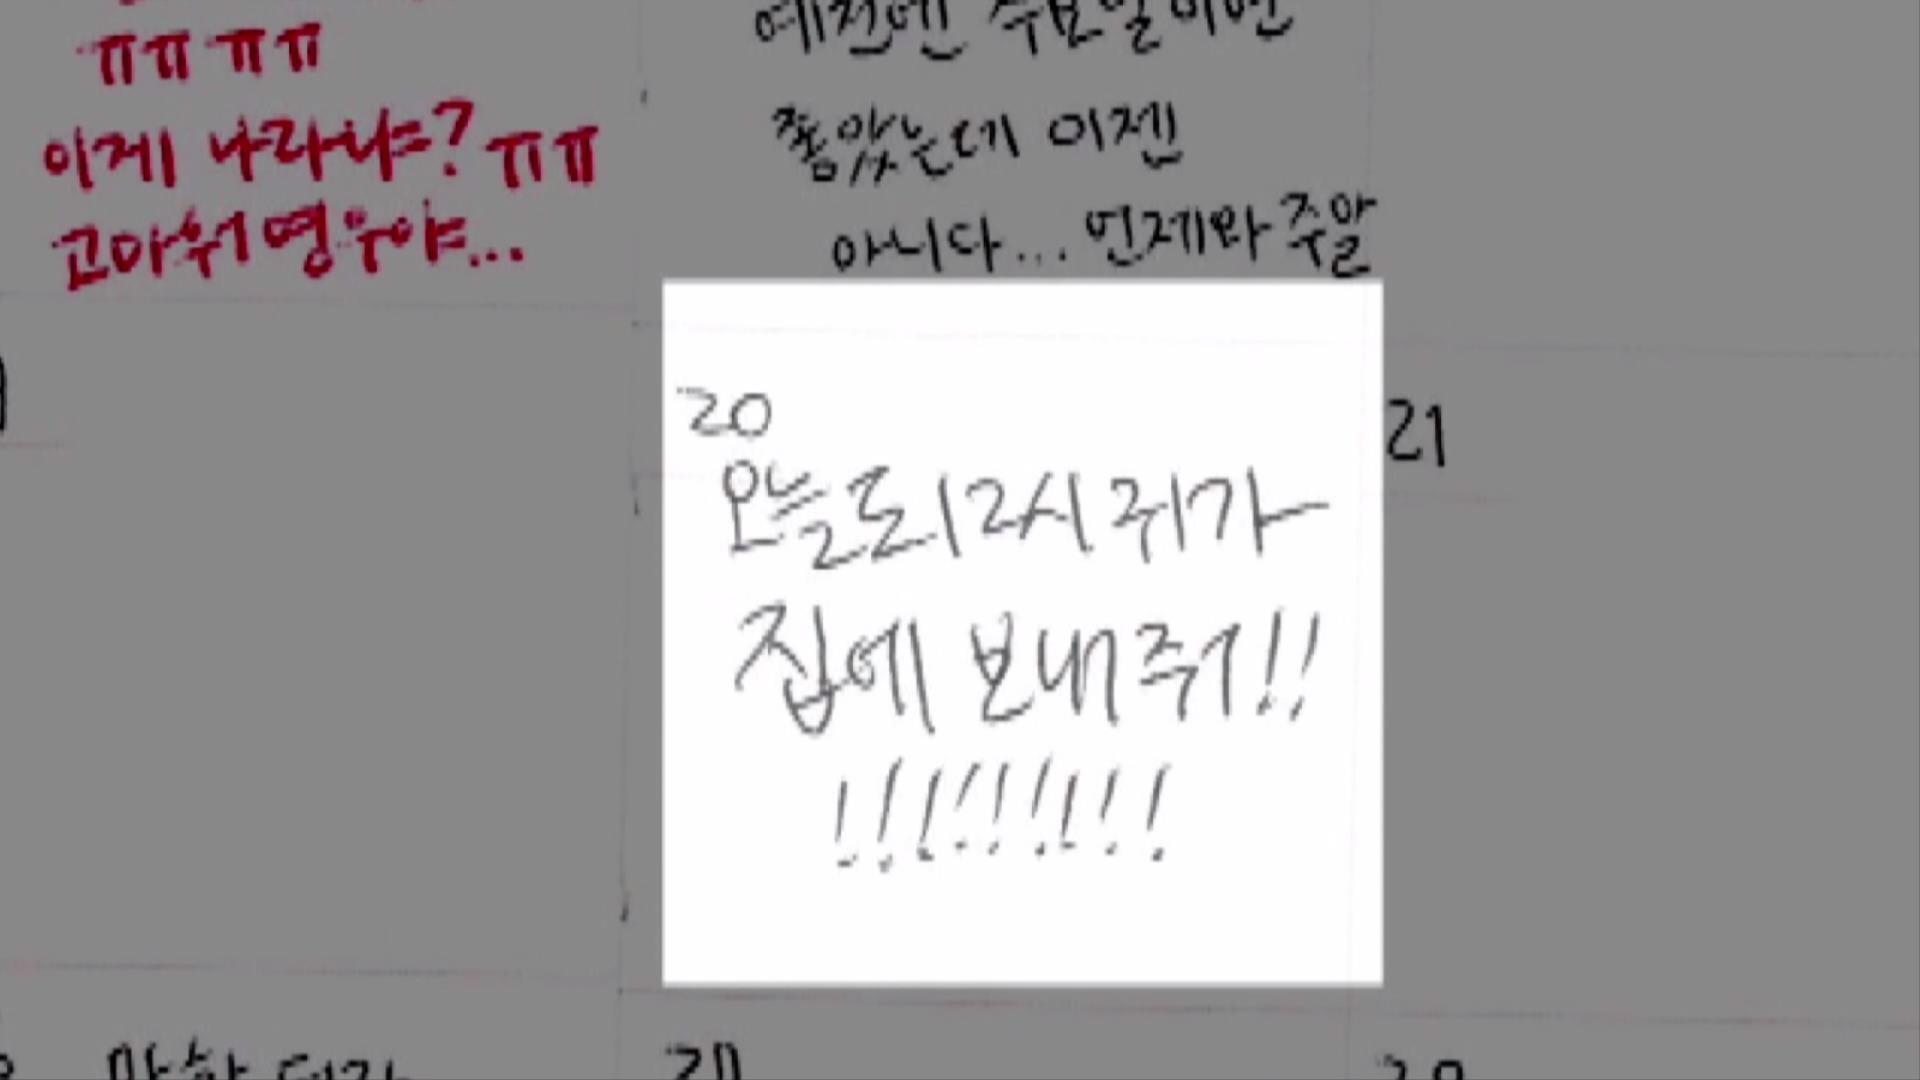 ㅠㅠㅠㅠ
이게 나라냐? ㅠㅠ
고마워 영우야...
예전엔 수요일이면
좋았는데 이젠
아니다... 언제와 주말
20
오늘도 12시 귀가
집에 보내줘!!
!!!!!!!!!
21